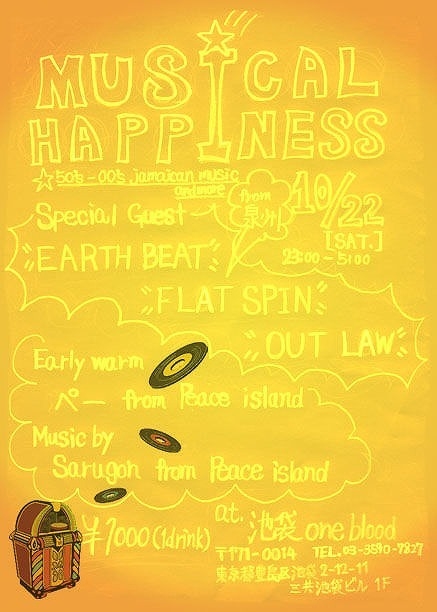 MUSICAL
HAPPINESS
☆50's-00's jamaican music
and more
from
泉州
10/22
[SAT.]
23:00-5:00
Special Guest
EARTH BEAT
FLAT SPIN
OUT LAW
Early warm
ペー from Peace island
Music by
Sarugon from Peace island
¥1000(1drink)
at. 池袋 one blood
〒171-0014 TEL.03-3590-7827
東京都豊島区池袋2-12-11
三共池袋ビル 1F